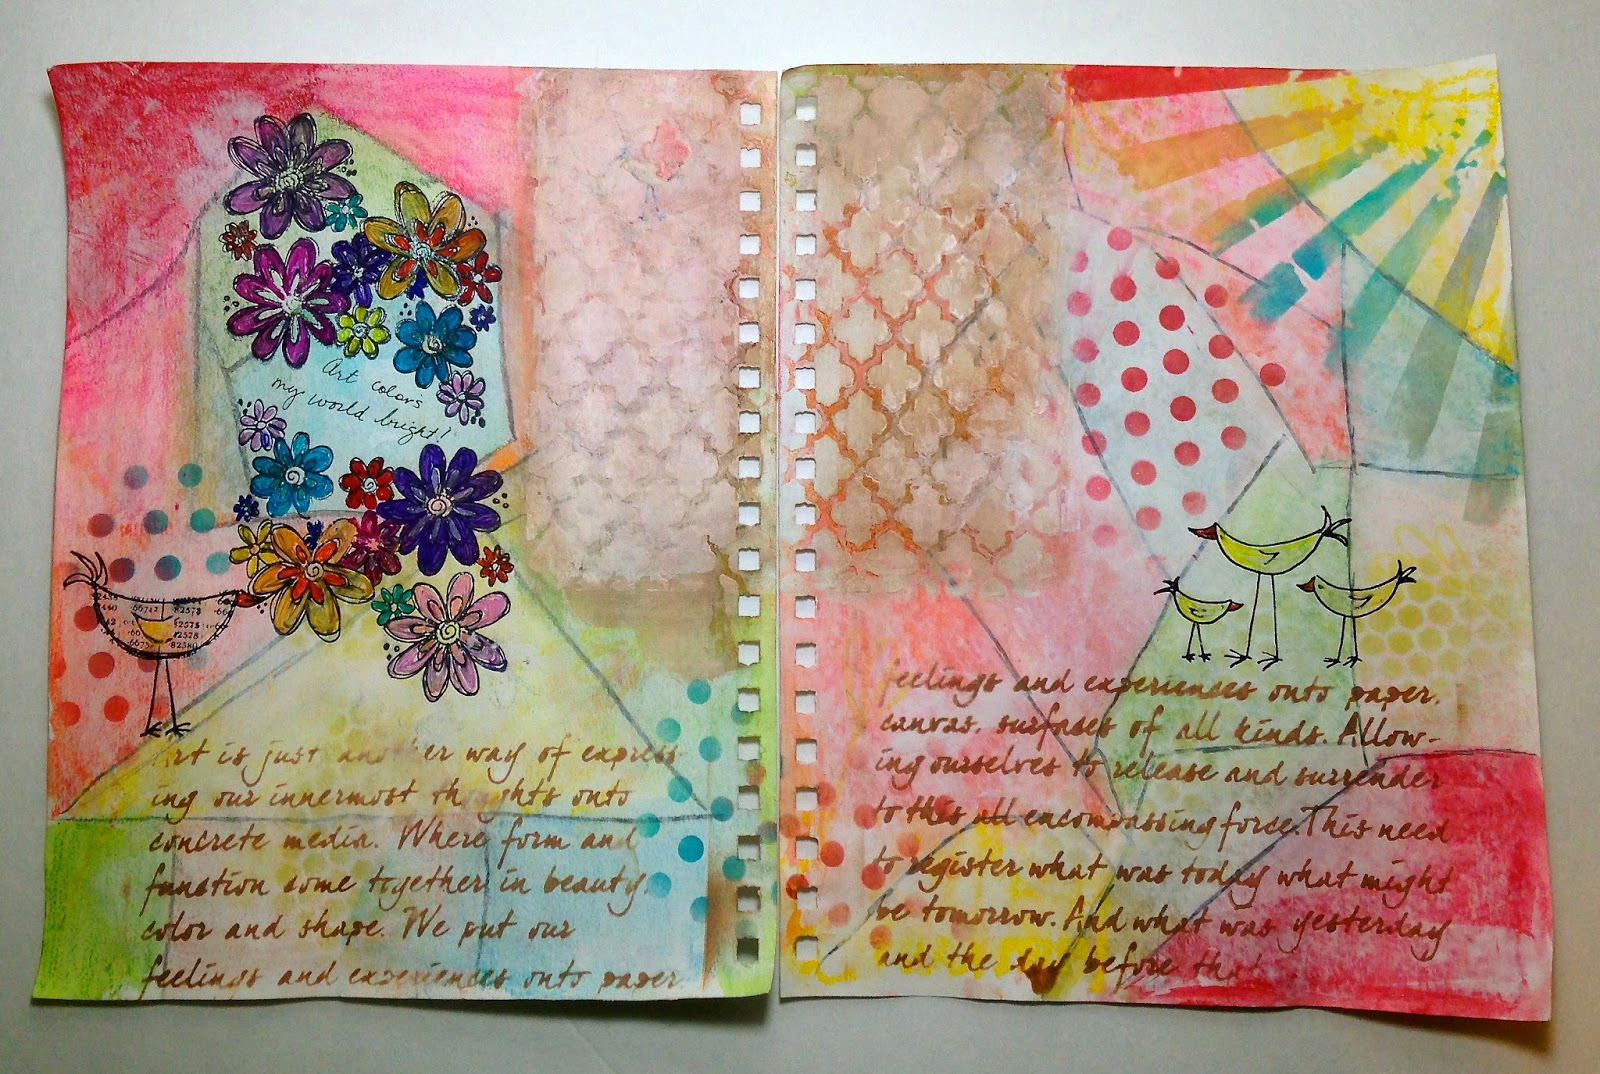 Art colors
my world bright!
82578
-667
82578
82580
Art is just another way of express
ing our innermost thoughts onto
concrete media. Where form and
function come together in beauty,
color and shape. We put our
feelings and experiences onto paper.
feelings and experiences onto paper,
canvas, surfaces of all kinds. Allow-
ing ourselves to release and surrender
to this all encompassing force. This need
to register what was today what might
be tomorrow. And what was yesterday
and the day before that